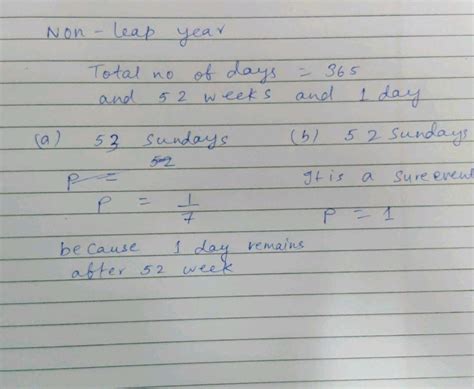 Non - leap year
Total no of days = 365
and 52 weeks and 1 day
(a) 53 Sundays
52
P =
P = 1/7
because 1 day remains
after 52 week
(b) 52 Sundays
It is a sure event
P = 1